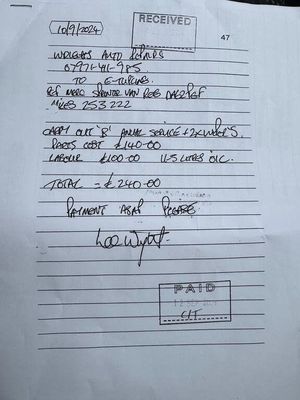 10/9/2024
RECEIVED
47
WRIGHTS AUTO REPAIRS
TO E-TURNS.
REF MERC SPRINTER VAN REG
MILES 253222
CARRY OUT 'B' ANNUAL SERVICE + 2X WIPERS.
PARTS COST £140-00
LABOUR £100-00 11.5 LITRES OIL.
TOTAL = £240-00
PAYMENT ASAP PLEASE
PAID
12 SEP